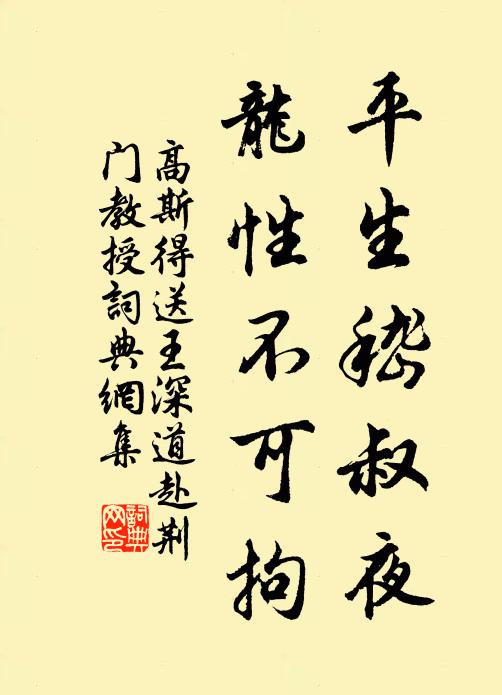 平生嵇叔夜
龍性不可拘
高斯得送王深道赴荆
门教授詞典網集
詞典网印